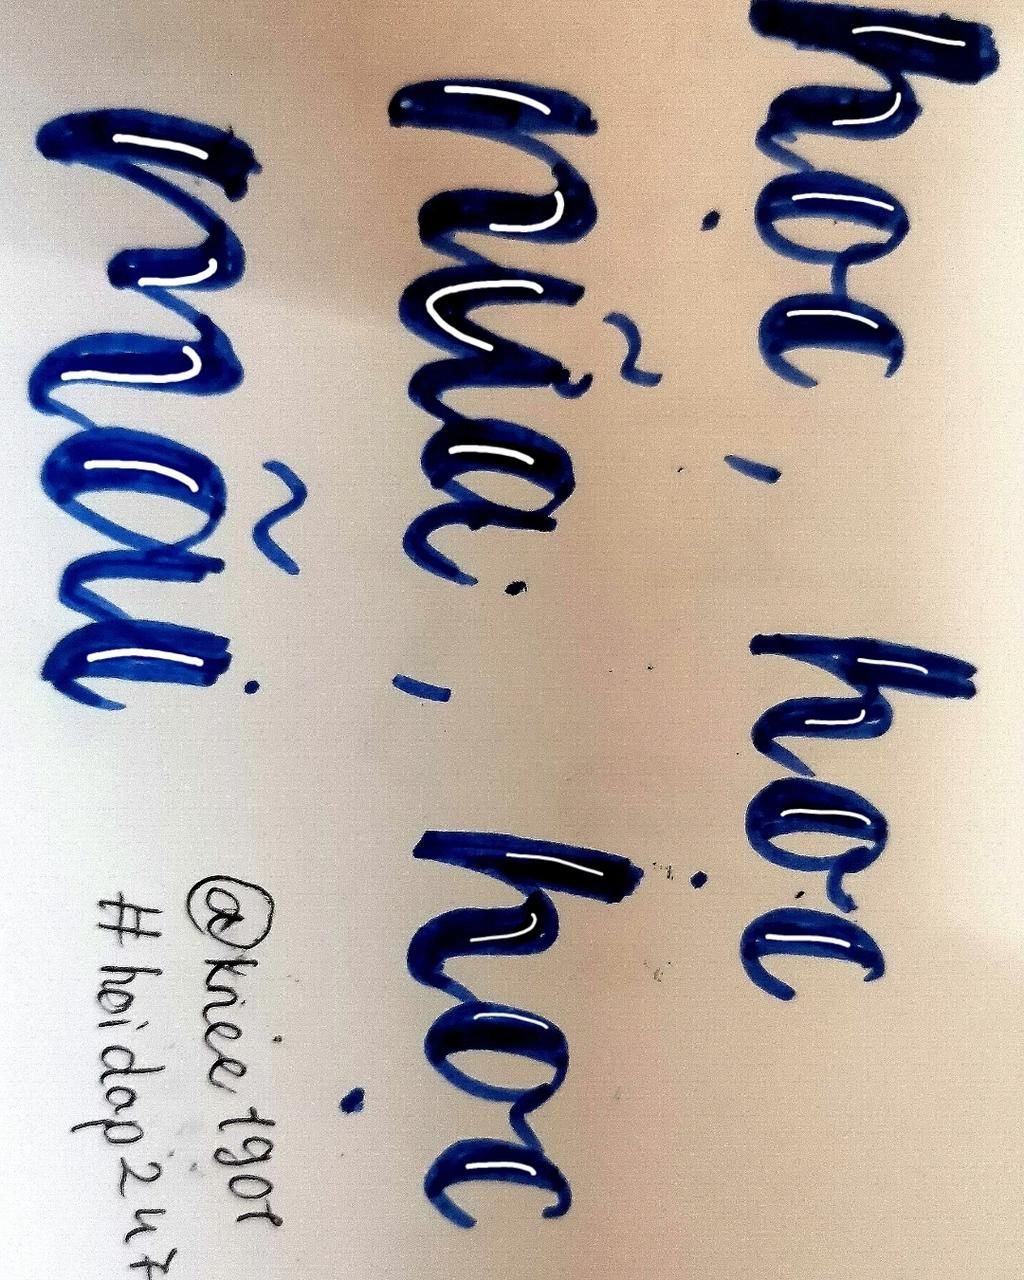 học, học
nữa, học
mãi
#hoidap247